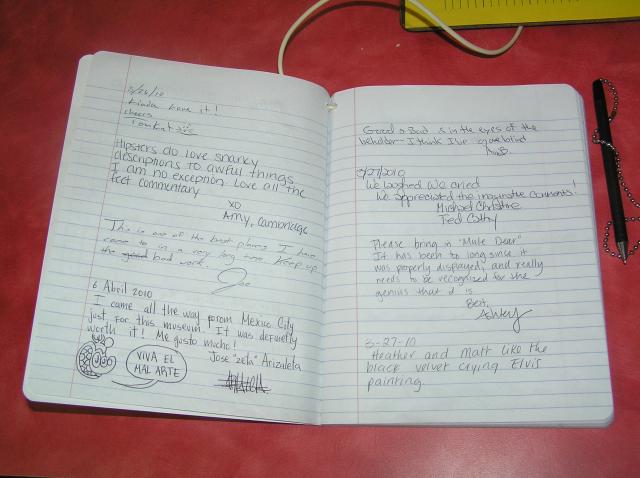 3/26/10
Kinda love it!
cheers
Hipsters do love snarky
descriptions to awful things.
I am no exception. Love all the
text commentary
XO
Amy, Cambridge
This is one of the best places I have
come to in a very long time. Keep up
the good bad work.
Joe
6 Abril 2010
I came all the way from Mexico City
just for this museum! It was definetly
worth it! Me gusto mucho!
Jose "zeta" Arizaleta
VIVA EL
MAL ARTE
Good or Bad is in the eyes of the
beholder - I think I've gone blind
3/27/2010
We laughed We cried
We appreciated the imaginative comments!
Michael Christine
Ted Cathy
Please bring in "Mute Dear"
It has been to long since it
was properly displayed, and really
needs to be recognized for the
genius that it is
Best,
Ashley
3-27-10
Heather and Matt like the
black velvet crying Elvis
painting.